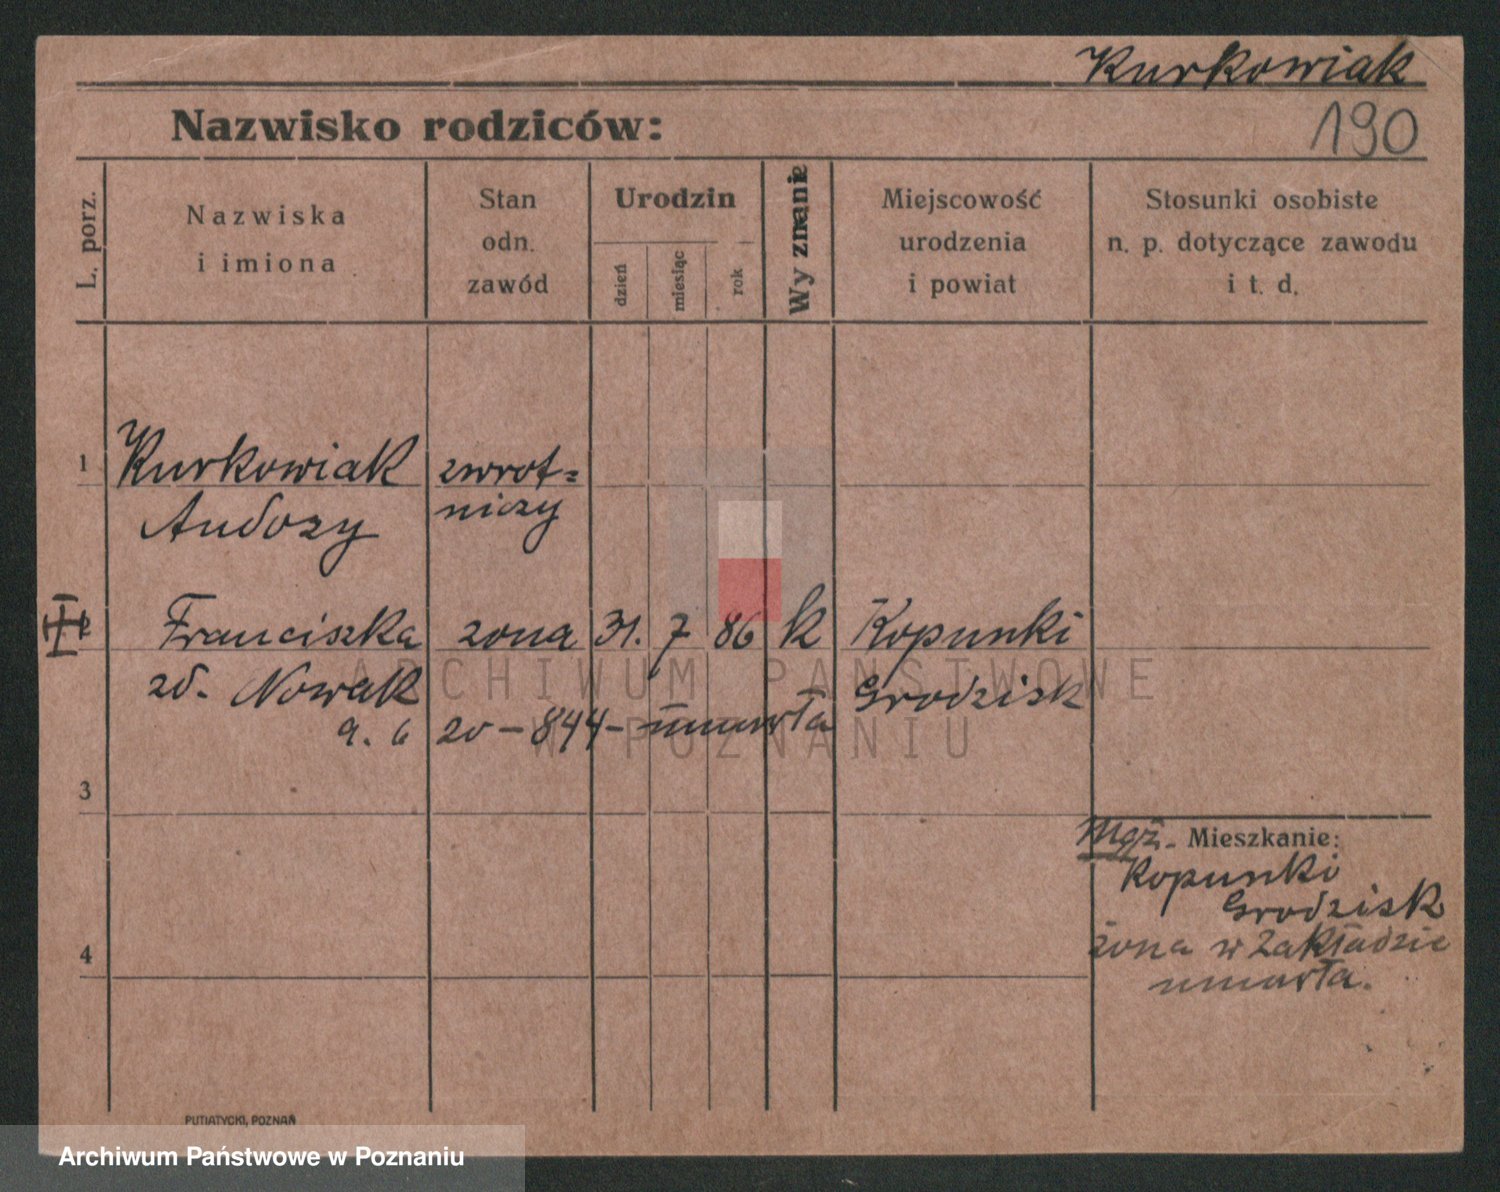 Kurkowiak
Nazwisko rodziców:
190
L. porz.
Nazwiska
i imiona
Stan
odn.
zawód
Urodzin
dzień
miesiąc
rok
Wyznanie
Miejscowość
urodzenia
i powiat
Stosunki osobiste
n. p. dotyczące zawodu
i t. d.
1 Kurkowiak zwrot=
niczy
2 Franciszka zona 31. 7 86 k Kopunki
zd. Nowak Grodzisk
9. 6 20-844- umarła
3
Mgż. Mieszkanie:
Kopunki
Grodzisk
4
żona w Zakładzie
umarła.
PUTIATYCKI, POZNAŃ
ARCHIWUM PAŃSTWOWE
W POZNANIU
Archiwum Państwowe w Poznaniu